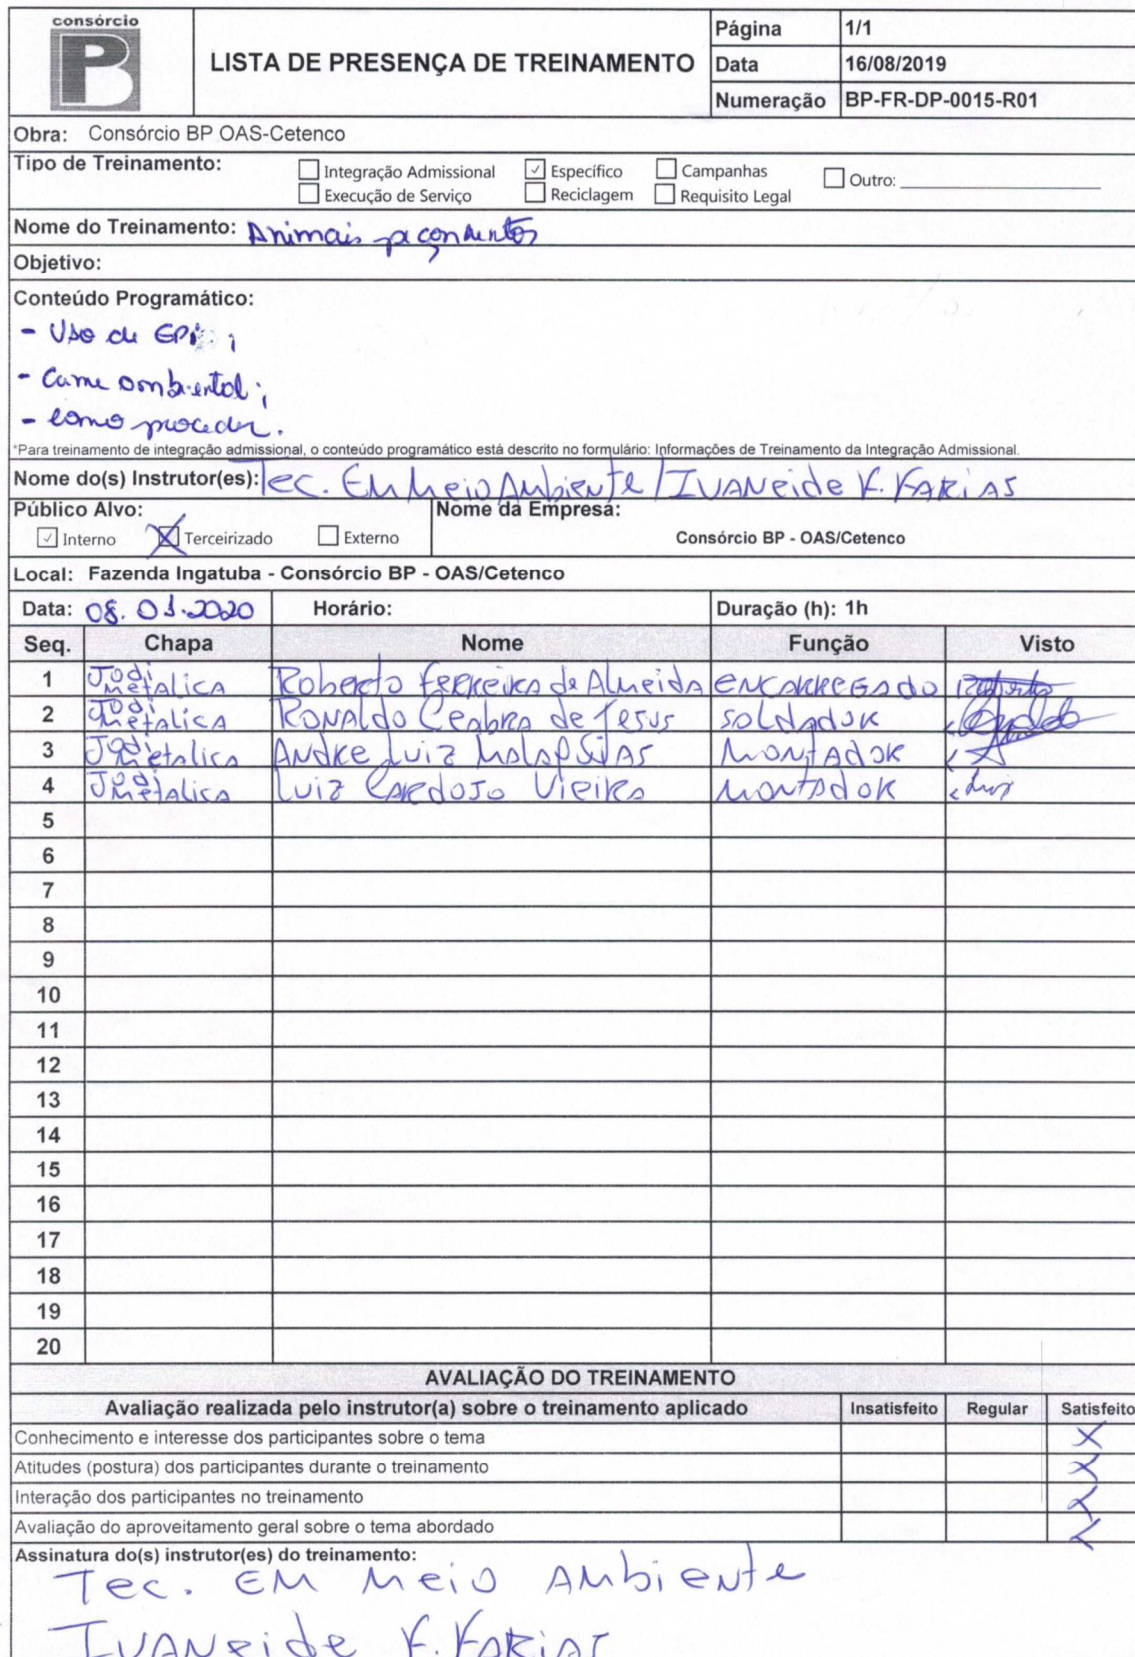 consórcio
BP
LISTA DE PRESENÇA DE TREINAMENTO
Página 1/1
Data 16/08/2019
Numeração BP-FR-DP-0015-R01
Obra: Consórcio BP OAS-Cetenco
Tipo de Treinamento:
Integração Admissional ✓ Específico Campanhas Outro:
Execução de Serviço Reciclagem Requisito Legal
Nome do Treinamento: Animais peçonhentos
Objetivo:
Conteúdo Programático:
- Uso de EPI ;
- Crime ambiental ;
- como proceder.
*Para treinamento de integração admissional, o conteúdo programático está descrito no formulário: Informações de Treinamento da Integração Admissional.
Nome do(s) Instrutor(es): Tec. EM Meio Ambiente / IVANeide F. FARIAS
Público Alvo: Nome da Empresa:
✓ Interno X Terceirizado Externo Consórcio BP - OAS/Cetenco
Local: Fazenda Ingatuba - Consórcio BP - OAS/Cetenco
Data: 08.01.2020 Horário: Duração (h): 1h
Seq. Chapa Nome Função Visto
1 Jodi Metalica Roberto Ferreira de Almeida encarregado Roberto
2 Jodi Metalica Ronaldo Ceabra de Jesus soldador
3 Jodi Metalica Andre Luiz Montador
4 Jodi Metalica Luiz Cardoso Vieira Montador Luiz
5
6
7
8
9
10
11
12
13
14
15
16
17
18
19
20
AVALIAÇÃO DO TREINAMENTO
Avaliação realizada pelo instrutor(a) sobre o treinamento aplicado Insatisfeito Regular Satisfeito
Conhecimento e interesse dos participantes sobre o tema X
Atitudes (postura) dos participantes durante o treinamento X
Interação dos participantes no treinamento X
Avaliação do aproveitamento geral sobre o tema abordado X
Assinatura do(s) instrutor(es) do treinamento:
Tec. EM Meio Ambiente
IVANeide F. FARIAS